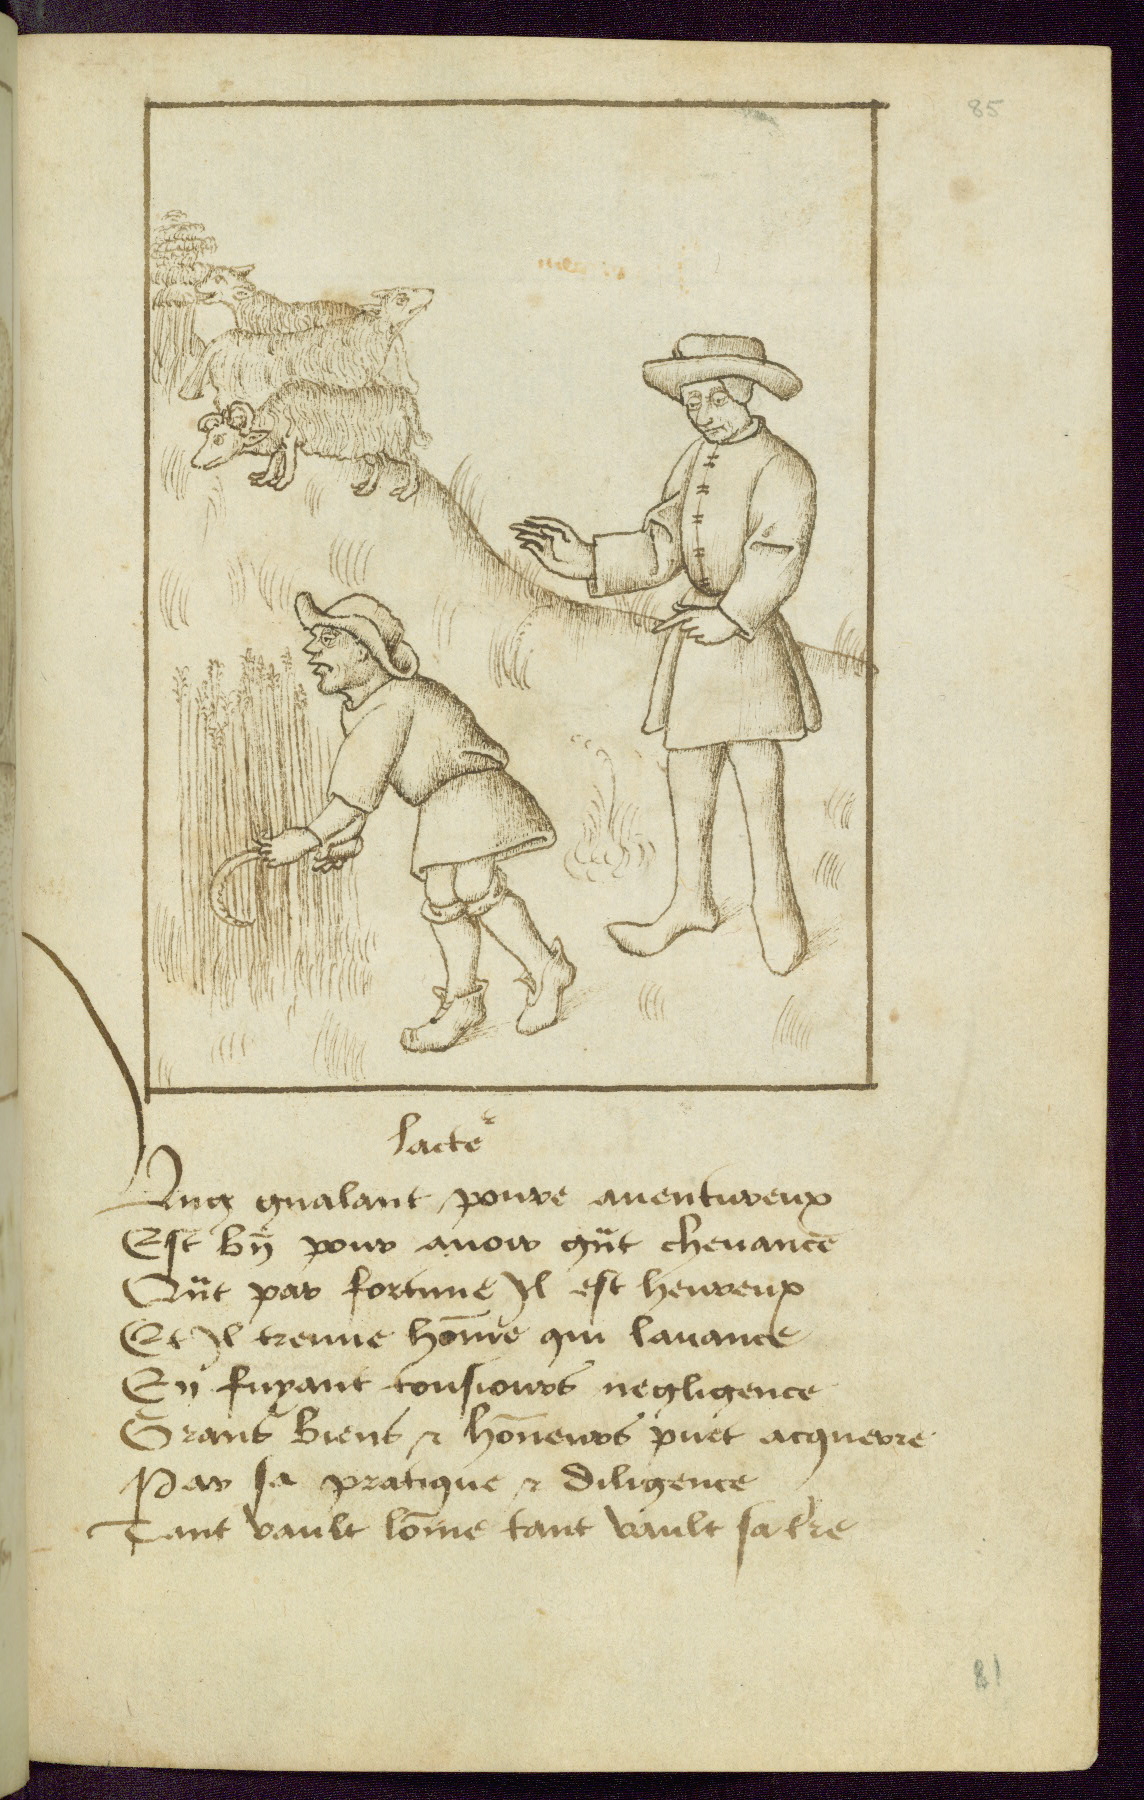 85
lacte^r
Ung gualant poure auentureux
Est bn̄ pour auoir gn̄t cheuance
Qn̄t par fortune Il est heureux
Et Il treuue hōme qui lauance
En fuyant tousiours negligence
Grans biens ⁊ hōneurs puet acquerre
Par sa pratique ⁊ diligence
Tant vault lōme tant vault sa tre
81